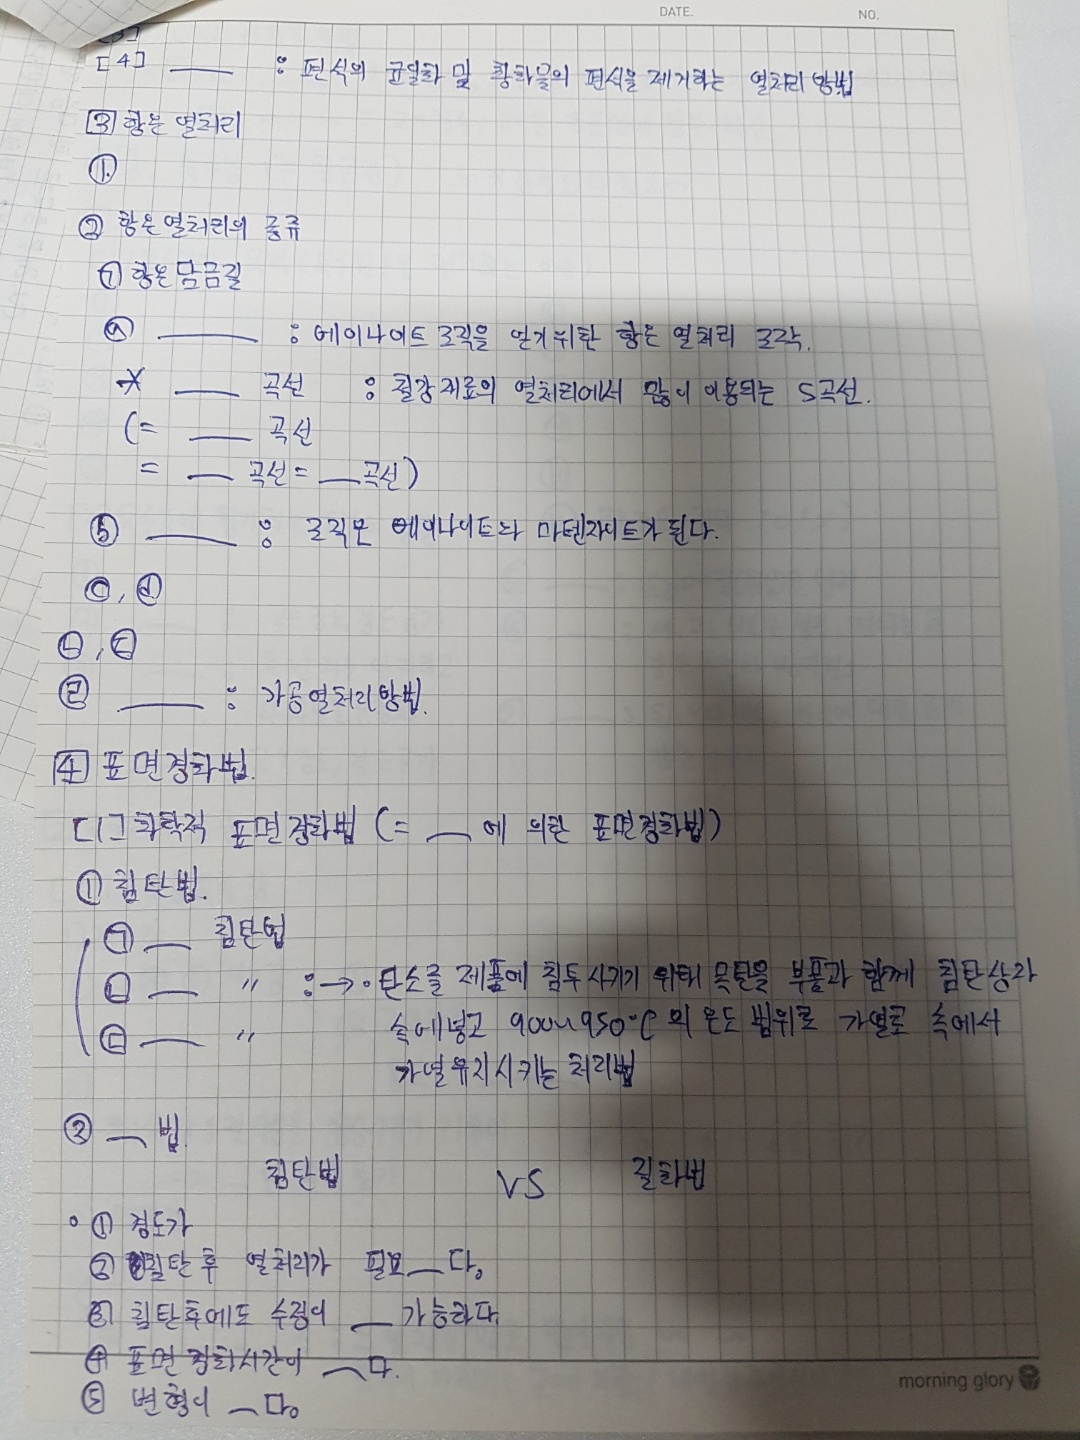 DATE. NO.
[3]
[4] ___ : 편석의 균일화 및 황화물의 편석을 제거하는 열처리 방법
[3] 항온 열처리
①
② 항온열처리의 종류
㉠ 항온담금질
ⓐ ___ : 베이나이트 조직을 얻기위한 항온 열처리 조작.
* ___ 곡선 : 철강재료의 열처리에서 많이 이용되는 S곡선.
(= ___ 곡선
= ___ 곡선 = ___곡선)
ⓑ ___ : 조직은 베이나이트와 마텐자이트가 된다.
ⓒ, ⓓ
㉡, ㉢
㉣ ___ : 가공열처리방법.
[4] 표면경화법.
[1] 화학적 표면경화법 (= __ 에 의한 표면경화법)
① 침탄법.
㉠ __ 침탄법
㉡ __ " : → · 탄소를 제품에 침투시키기 위해 목탄을 부품과 함께 침탄상자
㉢ __ " 속에넣고 900~950℃의 온도 범위로 가열로 속에서
가열유지시키는 처리법
② __ 법.
침탄법 VS 질화법
• ① 경도가
② 침탄 후 열처리가 필요__다.
③ 침탄후에도 수정이 __ 가능하다.
④ 표면 경화시간이 __다.
⑤ 변형이 __다.
morning glory